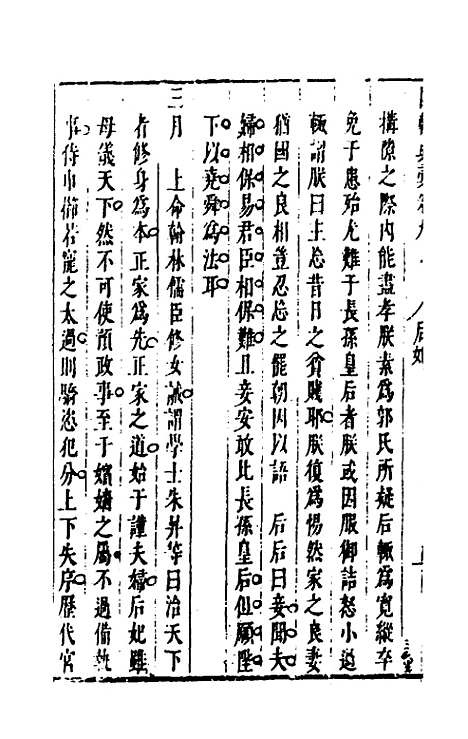 搆隙之際內能盡孝朕素為郭氏所疑后輒為寬縱卒
免于患殆尤難于長孫皇后者朕或因服御詰怒小過
輒謂朕曰主忘昔日之貧賤耶朕復為惕然家之良妻
猶國之良相豈忍忘之罷朝因以語 后后曰妾聞夫
婦相保易君臣相保難且妾安敢比長孫皇后但願陛
下以堯舜為法耳
三月 上命翰林儒臣修女誡謂學士朱昇等曰治天下
者修身為本正家為先正家之道始于謹夫婦后妃雖
母儀天下然不可使預政事至于嬪嬙之屬不過備執
事侍巾櫛若寵之太過則驕恣犯分上下失序歷代宮